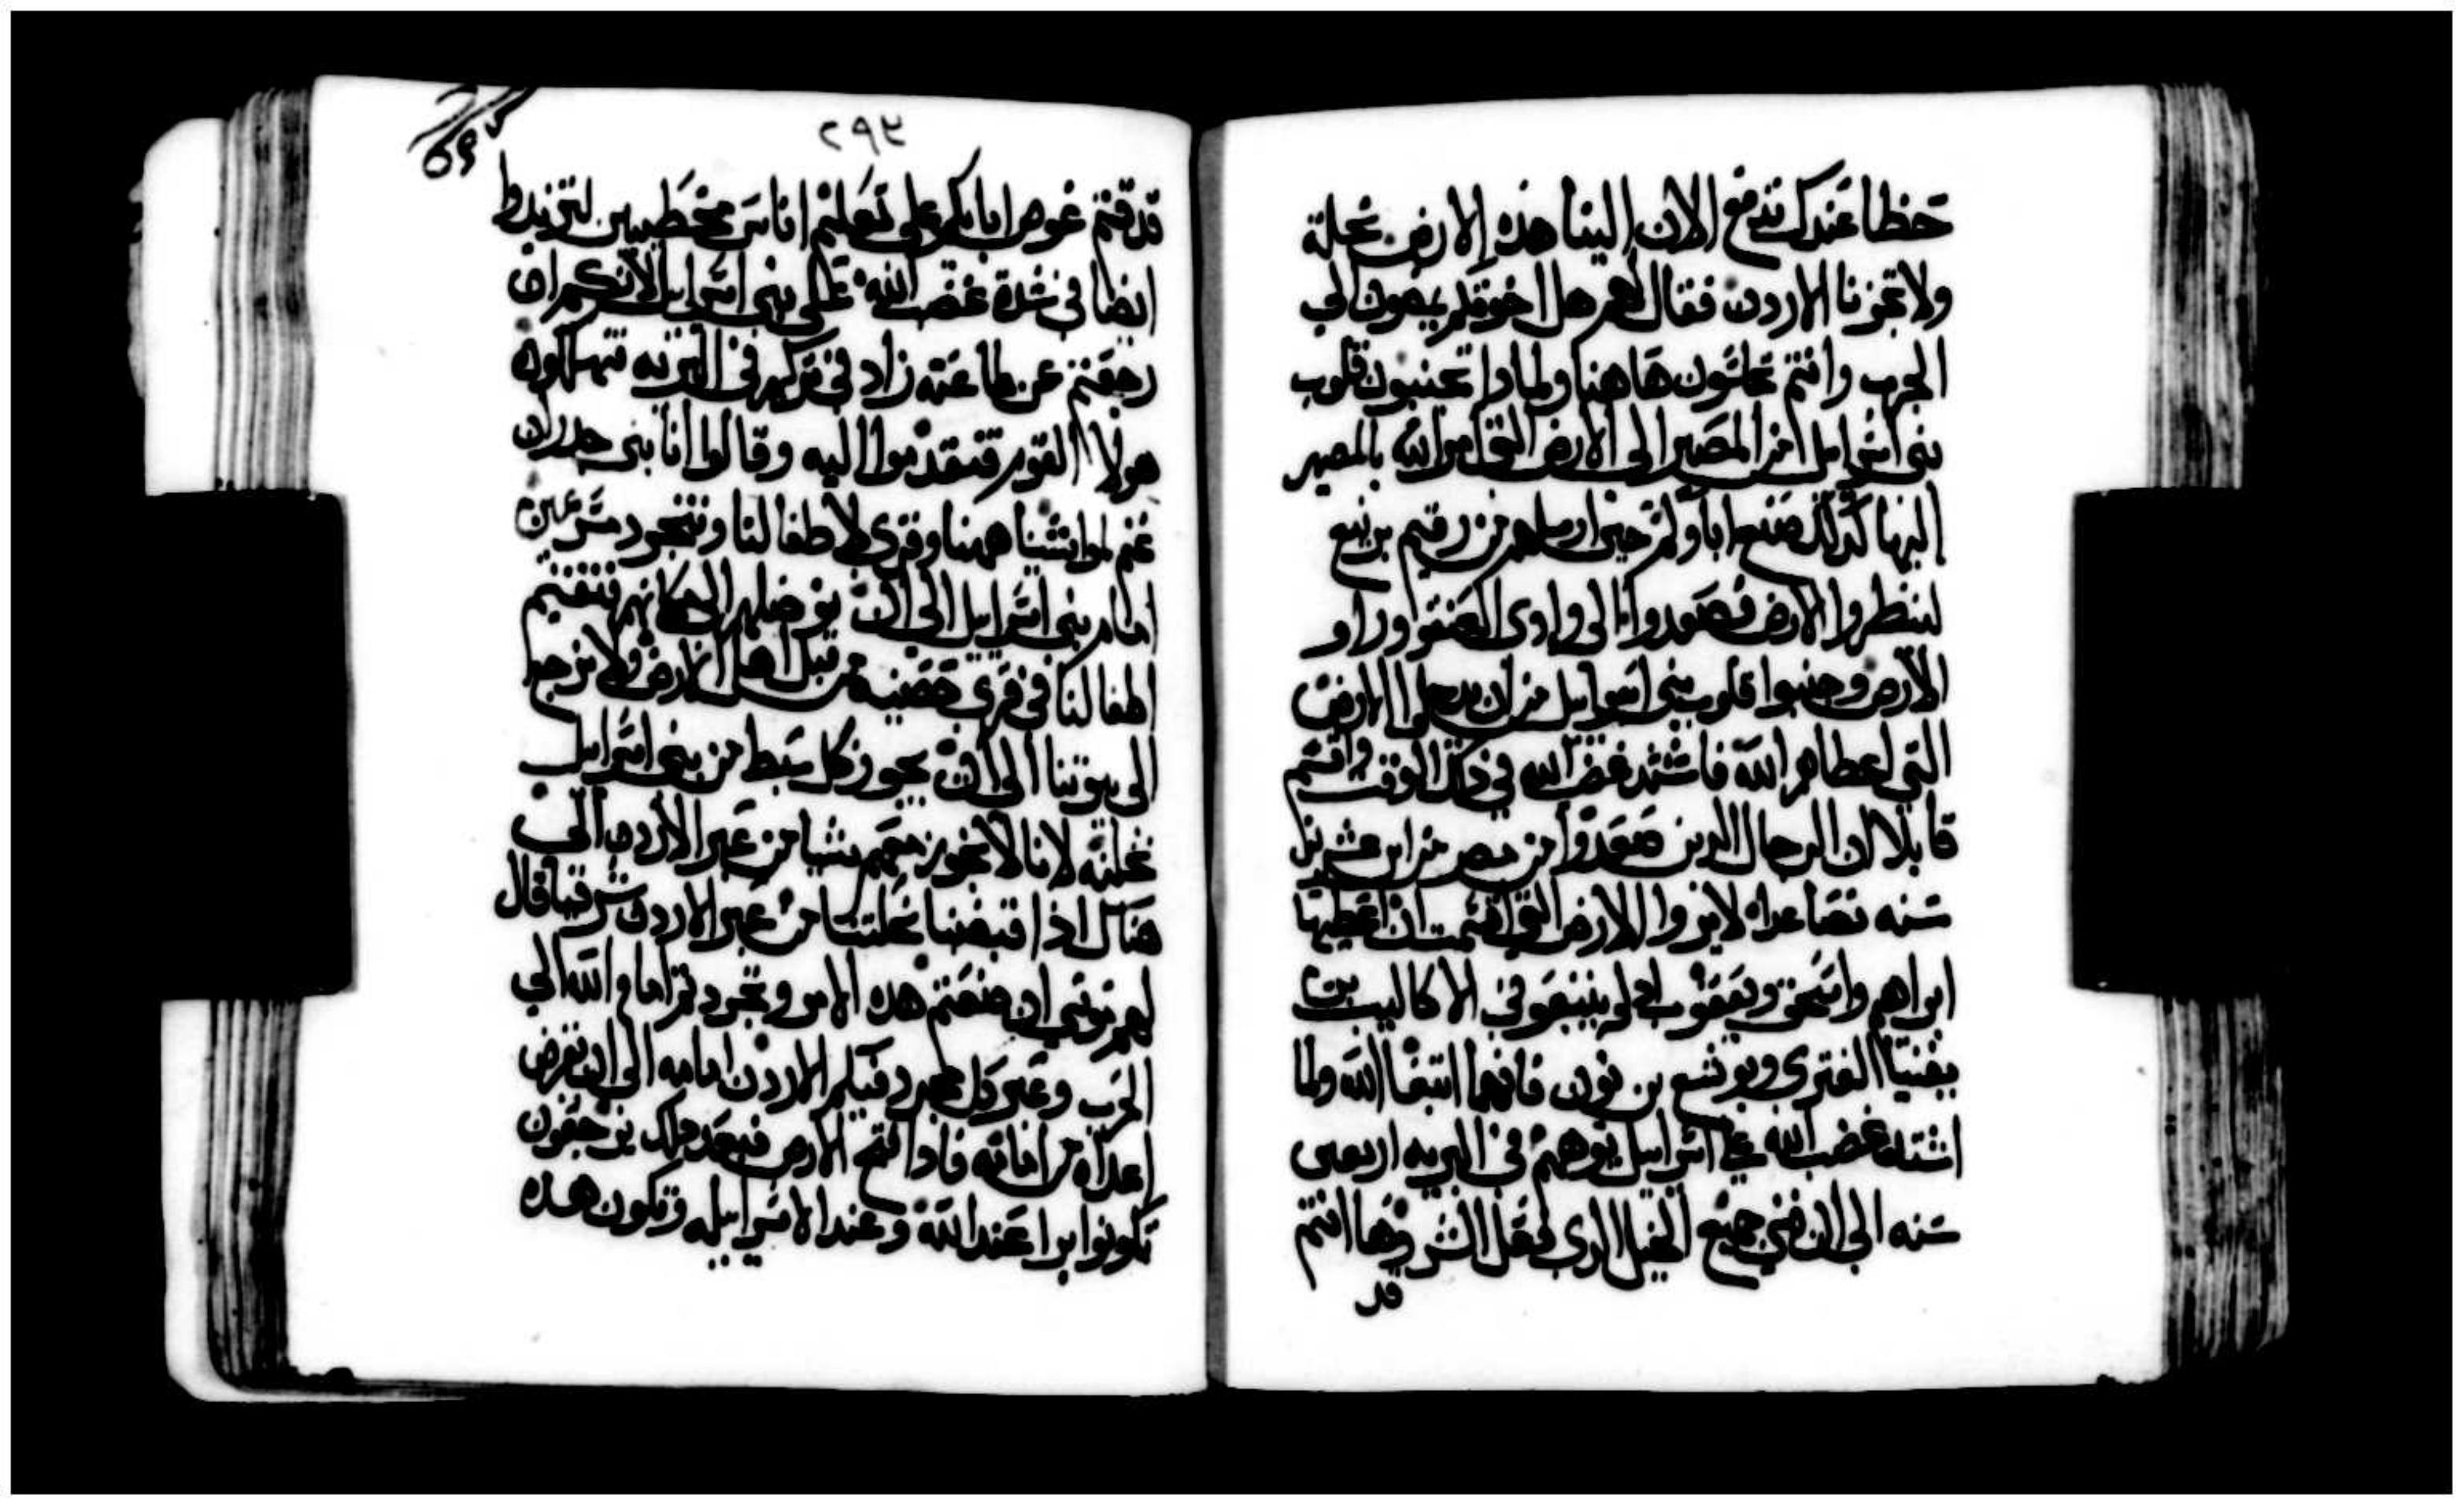 حظا عندك تدفع الان الينا هذه الارض نحلة
ولا تجوزنا الاردن فقال لهم هل اخوتكم يمضون الي
الحرب وانتم تجلسون هاهنا ولمادا تجنبون قلوب
بني اسرايل من المصير الى الارض التي امر الله بالمصير
اليها كذلك صنع اباوكم حين ارسلهم من رقيم برنيع
لينظروا الارض فصعدوا الى وادى العنقود وراو
الارض وجنبوا قلوب بني اسرايل من ان يدخلوا الارض
التي اعطاهم الله فاشتد غضب الله في ذلك الوقت واقسم
قايلا ان الرجال الدين صعدوا من مصر من ابن عشرين
سنه فصاعدا لا يروا الارض التي اقسمت ان اعطيها
ابراهيم واسحق ويعقوب اد لم يتبعوني الا كاليب بن
يفنيا القنزى ويوشع بن نون فانهما اتبعا الله ولما
اشتد غضب الله على اسرايل توههم في البريه اربعين
سنه الى ان فني جميع الجيل الدى فعل الشر وها انتم
قد
٢٩٣
قد قمتم عوض ابايكم على تعليم اناس مخطيين لتزيدوا
ايضا في شدة غضب الله على بني اسرايل لانكم ان
رجعتم عن طاعته زاد في تركهم في البريه فتهلكون
هولا القوم فتقدموا اليه وقالوا انا بني جدران
غنم لمواشينا ههنا وقرى لاطفالنا ونتجرد مسرعين
امام بني اسرايل الى ان نوصلهم الى مكانهم فتقيم
اطفالنا في قرى حصينه من قبل اهل الارض ولا نرجع
الى بيوتنا الى ان يحوز كل سبط من بني اسرايل
نحلته لانا لا نحوز معهم شيا من عبر الاردن الى
هناك اذا قبضنا نحلتنا من عبر الاردن شرقيا قال
لهم موسي ان صنعتم هذه الامر وتجردتم امام الله الي
الحرب وعبر كل مجرد فيكم الاردن امامه الى ان يقرض
اعداه من امامه فادا فتح الارض فبعد ذلك ترجعون
تكونوا برا عند الله وعند الاسرايليه وتكون هده